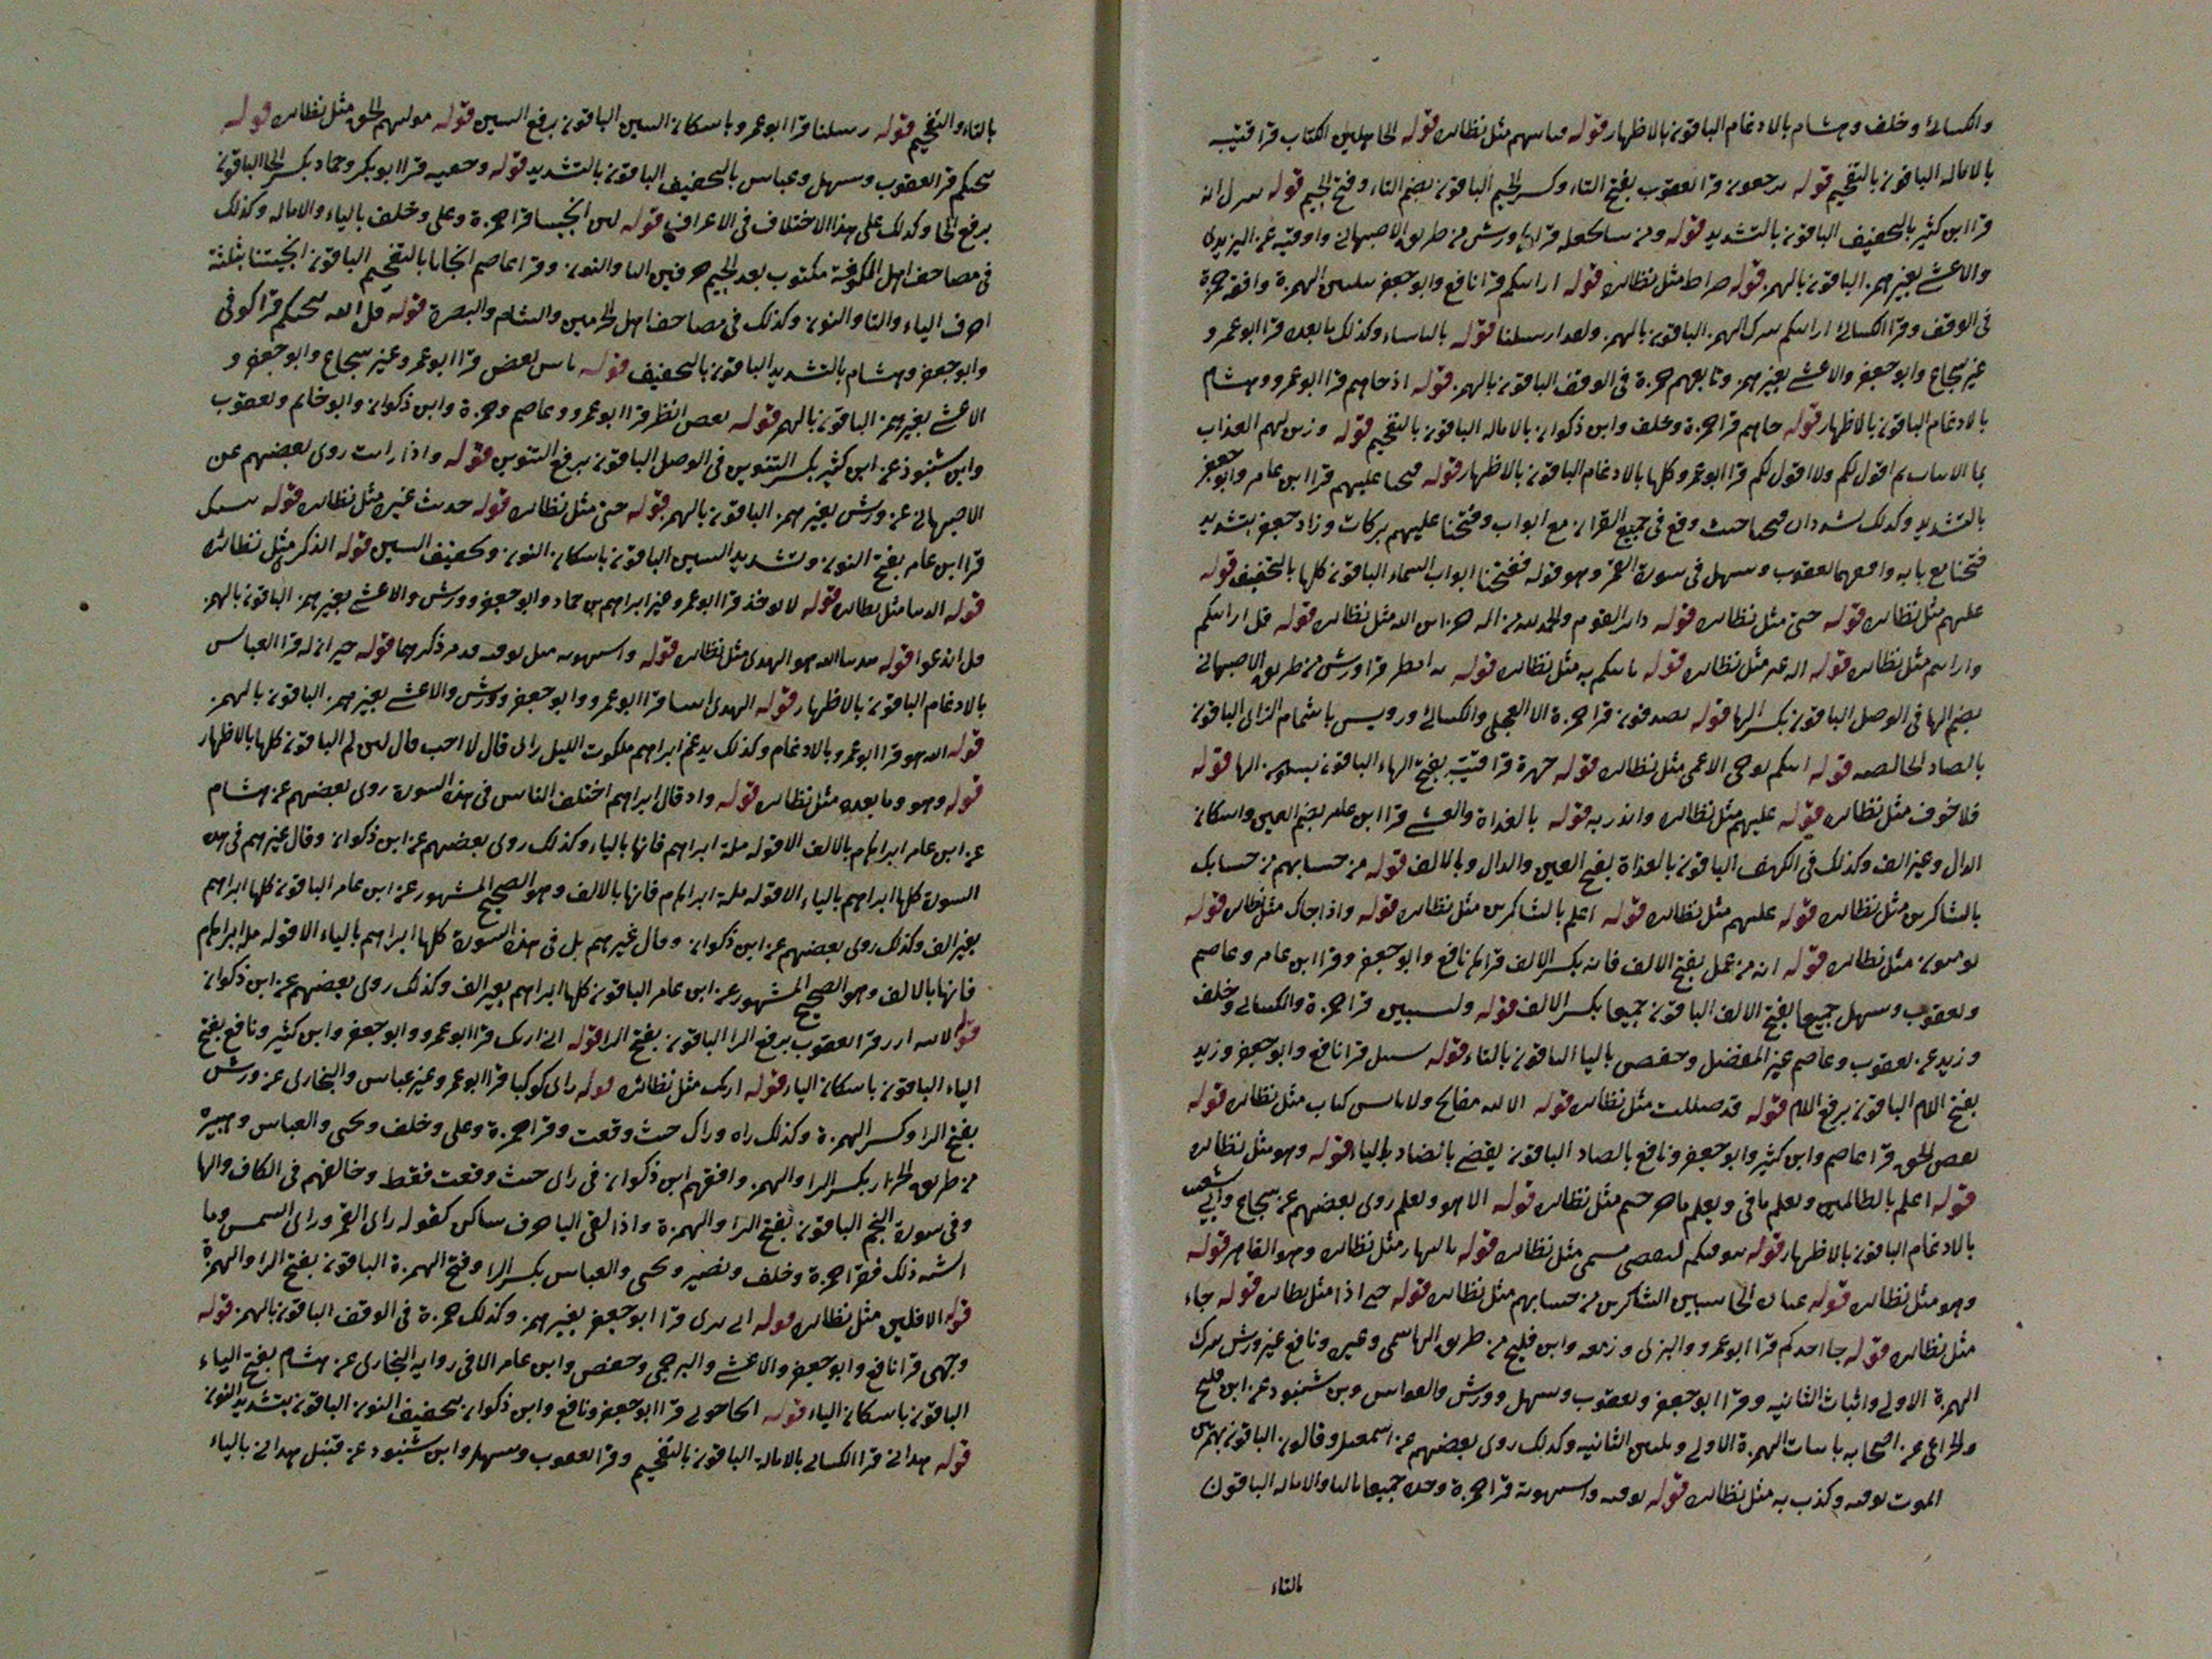 والكسائي وخلف وهشام بالادغام الباقون بالاظهار قوله مثل نظائره قوله الجاهلين الكتاب قرا قتيبة
بالاماله الباقون بالتفخيم قوله يرجعون قرا يعقوب بفتح التاء وكسر الجيم الباقون بضم التاء وفتح الجيم قوله ينزل انه
قرا ابن كثير بالتخفيف الباقون بالتشديد قوله ومن يشا يجعله قرا ورش من طريق الاصبهاني واوقيه عن اليزيدي
والاعشى بغير همز الباقون بالهمز قوله صراط مثل نظائره قوله ارايتكم قرا نافع وابو جعفر بتليين الهمزة وافقه حمزة
في الوقف وقرا الكسائي اريتكم بترك الهمز الباقون بالهمز ولقد ارسلنا قوله بالباساء وكذلك ما بعده قرا ابو عمرو
غير شجاع وابو جعفر والاعشى بغير همز وتابعهم حمزة في الوقف الباقون بالهمز قوله اذ جاهم قرا ابو عمرو وهشام
بالادغام الباقون بالاظهار قوله جاهم قرا حمزة وخلف وابن ذكوان بالاماله الباقون بالتفخيم قوله وزين لهم العذاب
بما الايات ثم اقول لكم ولا اقول لكم قرا ابو عمرو كلها بالادغام الباقون بالاظهار قوله فتحنا عليهم قرا ابن عامر وابو جعفر
بالتشديد وكذلك يشددان فتحنا حيث وقع في جميع القران مع ابواب وفتحنا عليهم بركات وزاد جعفر بتشديد
فتحنا مع بابه وافقهما يعقوب وسهل في سورة القمر وهو قوله ففتحنا ابواب السماء الباقون كلها بالتخفيف قوله
عليهم مثل نظائره قوله حتى مثل نظائره قوله دابر القوم والحمد لله من اله خزاين الله مثل نظائره قوله قل ارايتكم
وارايتم مثل نظائره قوله اله غير مثل نظائره قوله ياتيكم به مثل نظائره قوله به انظر قرا ورش من طريق الاصبهاني
بضم الها في الوصل الباقون بكسر الها قوله يصدفون قرا حمزة الا العجلي والكسائي ورويس باشمام الزاي الباقون
بالصاد الخالصه قوله اتيكم يوحى الاعمى مثل نظائره قوله جهرة قرا قتيبة بفتح الهاء الباقون بسكون الها قوله
فلا خوف مثل نظائره قوله عليهم مثل نظائره وانذر به قوله بالغداة والعشي قرا ابن عامر بضم العين واسكان
الدال وغير الف وكذلك في الكهف الباقون بالغداة بفتح العين والدال وبالالف قوله من حسابهم من حسابك
بالشاكرين مثل نظائره قوله عليهم مثل نظائره قوله اعلم بالشاكرين مثل نظائره قوله واذا جاك مثل نظائره قوله
يومنون مثل نظائره قوله انه من عمل بفتح الالف فانه بكسر الالف قراهم نافع وابو جعفر وقرا ابن عامر وعاصم
ويعقوب وسهل جميعا بفتح الالف الباقون جميعا بكسر الالف قوله وليستبين قرا حمزة والكسائي وخلف
وزيد عن يعقوب وعاصم غير المفضل وحفص باليا الباقون بالتاء قوله سبيل قرا نافع وابو جعفر وزيد
بفتح اللام الباقون برفع اللام قوله قد ضللت مثل نظائره قوله الا لله مفاتح ولا يابس كتاب مثل نظائره قوله
يقص الحق قرا عاصم وابن كثير وابو جعفر ونافع بالصاد الباقون يقضى بالضاد بالياء قوله وهو مثل نظائره
قوله اعلم بالظالمين ويعلم ما في ويعلم ما جرحتم مثل نظائره قوله الا هو ويعلم روى بعضهم عن شجاع وابي شعيب
بالادغام الباقون بالاظهار قوله يتوفيكم ليقضى مسمى مثل نظائره قوله بالنهار مثل نظائره وهو القاهر قوله
وهو مثل نظائره قوله عباده الحاسبين الشاكرين من حسابهم مثل نظائره قوله حتى اذا مثل نظائره قوله جاء
مثل نظائره قوله جا احدكم قرا ابو عمرو والبزي وزمعه وابن فليح من طريق الهاشمي وغيره ونافع غير ورش بترك
الهمزة الاولى واثبات الثانيه وقرا ابو جعفر ويعقوب وسهل وورش والقواس وبن شنبوذ عن ابن فليح
والخزاعي عن اصحابه باثبات الهمزة الاولى وتليين الثانيه وكذلك روى بعضهم عن اسمعيل وقالون الباقون بهمزتين
الموت توفته وكذب به مثل نظائره قوله توفته واستهوته قرا حمزة وحده جميعا باليا والاماله الباقون
بالتاء
بالتاء والتفخيم قوله رسلنا قرا ابو عمرو باسكان السين الباقون برفع السين قوله موليهم الحق مثل نظائره قوله
ينجيكم قرا يعقوب وسهل وعباس بالتخفيف الباقون بالتشديد قوله وخفيه قرا ابو بكر وحماد بكسر الخا الباقون
برفع الخا وكذلك على هذا الاختلاف في الاعراف قوله لين انجيتنا قرا حمزة وعلي وخلف بالياء والاماله وكذلك
في مصاحف اهل الكوفة مكتوب بعد الجيم حرفين اليا والنون وقرا عاصم انجانا بالتفخيم الباقون انجيتنا بثلثة
احرف الياء والتا والنون وكذلك في مصاحف اهل الحرمين والشام والبصرة قوله قل الله ينجيكم قرا كوفي
وابو جعفر وهشام بالتشديد الباقون بالتخفيف قوله باس بعض قرا ابو عمرو غير شجاع وابو جعفر و
الاعشى بغير همز الباقون بالهمز قوله بعض انظر قرا ابو عمرو وعاصم وحمزة وابن ذكوان وابو حاتم ويعقوب
وابن شنبوذ عن ابن كثير بكسر التنوين في الوصل الباقون برفع التنوين قوله واذا رايت روى بعضهم عن
الاصبهاني عن ورش بغير همز الباقون بالهمز قوله حتى مثل نظائره قوله حديث غيره مثل نظائره قوله ينسينك
قرا ابن عامر بفتح النون وتشديد السين الباقون باسكان النون وتخفيف السين قوله الذكرى مثل نظائره
قوله الدنيا مثل نظائره قوله لا يوخذ قرا ابو عمرو غير ابراهيم بن حماد وابو جعفر وورش والاعشى بغير همز الباقون بالهمز
قل اندعوا قوله هدينا الله هو الهدى مثل نظائره قوله واستهوته مثل توفته قد مر ذكرهما قوله حيران له قرا العباس
بالادغام الباقون بالاظهار قوله الهدى ايتنا قرا ابو عمرو وابو جعفر وورش والاعشى بغير همز الباقون بالهمز
قوله الله هو قرا ابو عمرو بالادغام وكذلك يدغم ابراهيم ملكوت الليل راى قال لا احب قال لين لم الباقون كلها بالاظهار
قوله وهو وما بعده مثل نظائره قوله واذ قال ابراهيم اختلف الناس في هذه السورة روى بعضهم عن هشام
عن ابن عامر ابراهام بالالف الا قوله ملة ابراهيم فانها بالياء وكذلك روى بعضهم عن ابن ذكوان وقال غيرهم في هذه
السورة كلها ابراهيم بالياء الا قوله ملة ابراهام فانها بالالف وهو الصحيح المشهور عن ابن عامر الباقون كلها ابراهيم
بغير الف وكذلك روى بعضهم عن ابن ذكوان وقال غيرهم بل في هذه السورة كلها ابراهيم بالياء الا قوله ملة ابراهام
فانها بالالف وهو الصحيح المشهور عن ابن عامر الباقون كلها ابراهيم بغير الف وكذلك روى بعضهم عن ابن ذكوان
قوله لابيه ازر قرا يعقوب برفع الرا الباقون بفتح الرا قوله اني اريك قرا ابو عمرو وابو جعفر وابن كثير ونافع بفتح
الياء الباقون باسكان الياء قوله اريك مثل نظائره قوله راى كوكبا قرا ابو عمرو غير عباس والبخاري عن ورش
بفتح الرا وكسر الهمزة وكذلك راه وراك حيث وقعت وقرا حمزة وعلي وخلف ويحيى والعباس وهبيره
من طريق الخزاز بكسر الرا والهمز وافقهم ابن ذكوان في راى حيث وقعت فقط وخالفهم في الكاف والها
وفي سورة النجم الباقون بفتح الرا والهمزة واذا لقي اليا حرف ساكن كقوله راى القمر وراى الشمس وما
اشبه ذلك فقرا حمزة وخلف ونصير ويحيى والعباس بكسر الرا وفتح الهمزة الباقون بفتح الرا والهمزة
قوله الافلين مثل نظائره قوله اني برى قرا ابو جعفر بغير همز وكذلك حمزة في الوقف الباقون بالهمز قوله
وجهى قرا نافع وابو جعفر والاعشى والبرجمي وحفص وابن عامر الا في رواية البخاري عن هشام بفتح الياء
الباقون باسكان الياء قوله اتحاجوني قرا ابو جعفر ونافع وابن ذكوان بتخفيف النون الباقون بتشديد النون
قوله هداني قرا الكسائي بالامالة الباقون بالتفخيم وقرا يعقوب وسهل وابن شنبوذ عن قنبل هداني بالياء